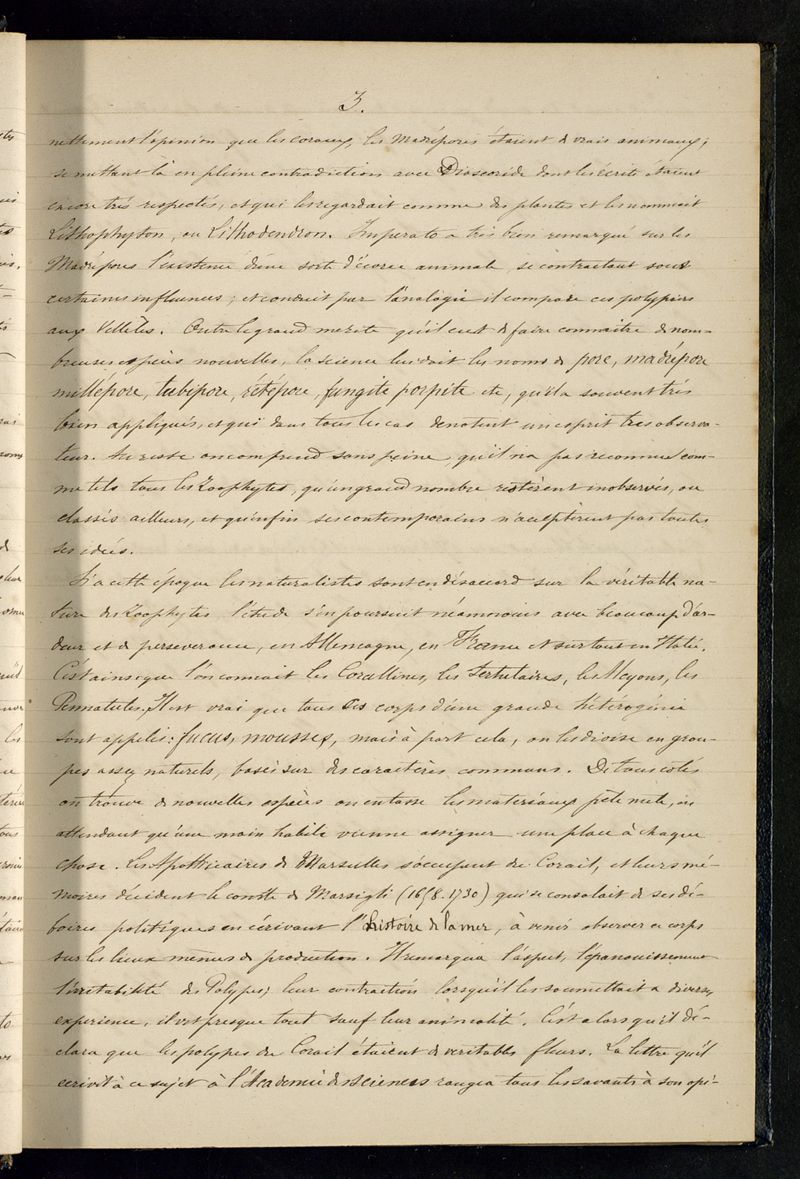 3.
nettement l'opinion que les coraux, les Madrépores étaient de vrais animaux;
se mettant là en pleine contradiction avec Dioscoride dont les écrits étaient
encore très respectés, et qui les regardait comme des plantes et les nommait
Lithophyton, ou Lithodendron. Imperato a très bien remarqué sur les
Madrépores l'existence d'une sorte d'écorce animale, se contractant sous
certaines influences; et conduit par l'analogie il compare ces polypiers
aux Vellèles. Outre le grand mérite qu'il eut de faire connaitre de nom-
breuses espèces nouvelles, la science lui doit les noms de pore, madrépore
millépore, tubipore, rétépore, fungite porpite etc, qu'il a souvent très
bien appliqués, et qui dans tous les cas denotent un esprit très observa-
teur. Au reste on comprend sans peine, qu'il n'a pas reconnu com-
me tels tous les Zoophytes, qu'un grand nombre restèrent inobservés, ou
classés ailleurs, et qu'enfin ses contemporains n'acceptèrent pas toutes
ses idées.
Si a cette époque les naturalistes sont en désaccord sur la véritable na-
ture des Zoophytes l'étude s'en poursuit néanmoins avec beaucoup d'ar-
deur et de perseverance, en Allemagne, en France et surtout en Italie.
C'est ainsi que l'on connait les Corallines, les Sertulaires, les Alcyons, les
Pennatules. Il est vrai que tous ces corps d'une grande hétérogénie
sont appelés: fucus, mousses, mais à part cela, on les divise en grou-
pes assez naturels, basés sur des caractères communs. De tous cotés
on trouve de nouvelles espèces on entasse les materiaux pêle mêle, en
attendant qu'une main habile vienne assigner une place à chaque
chose. Les Apothicaires de Marseilles s'occupent du Corail, et leurs mé-
moires décident le comte de Marsigli (1658-1730) qui se consolait de ses dé-
boires politiques en écrivant l'histoire de la mer, à venir observer ce corps
sur les lieux mêmes de production. Il remarqua l'aspect, l'épanouissement
l'irritabilité des Polypes; leur contraction lorsqu'il les soumettait a diverses
experience, il vit presque tout sauf leur animalité. C'est alors qu'il dé-
clara que les polypes du Corail étaient de veritables fleurs. La lettre qu'il
ecrivit à ce sujet à l'Academie des sciences rangea tous les savants à son opi-